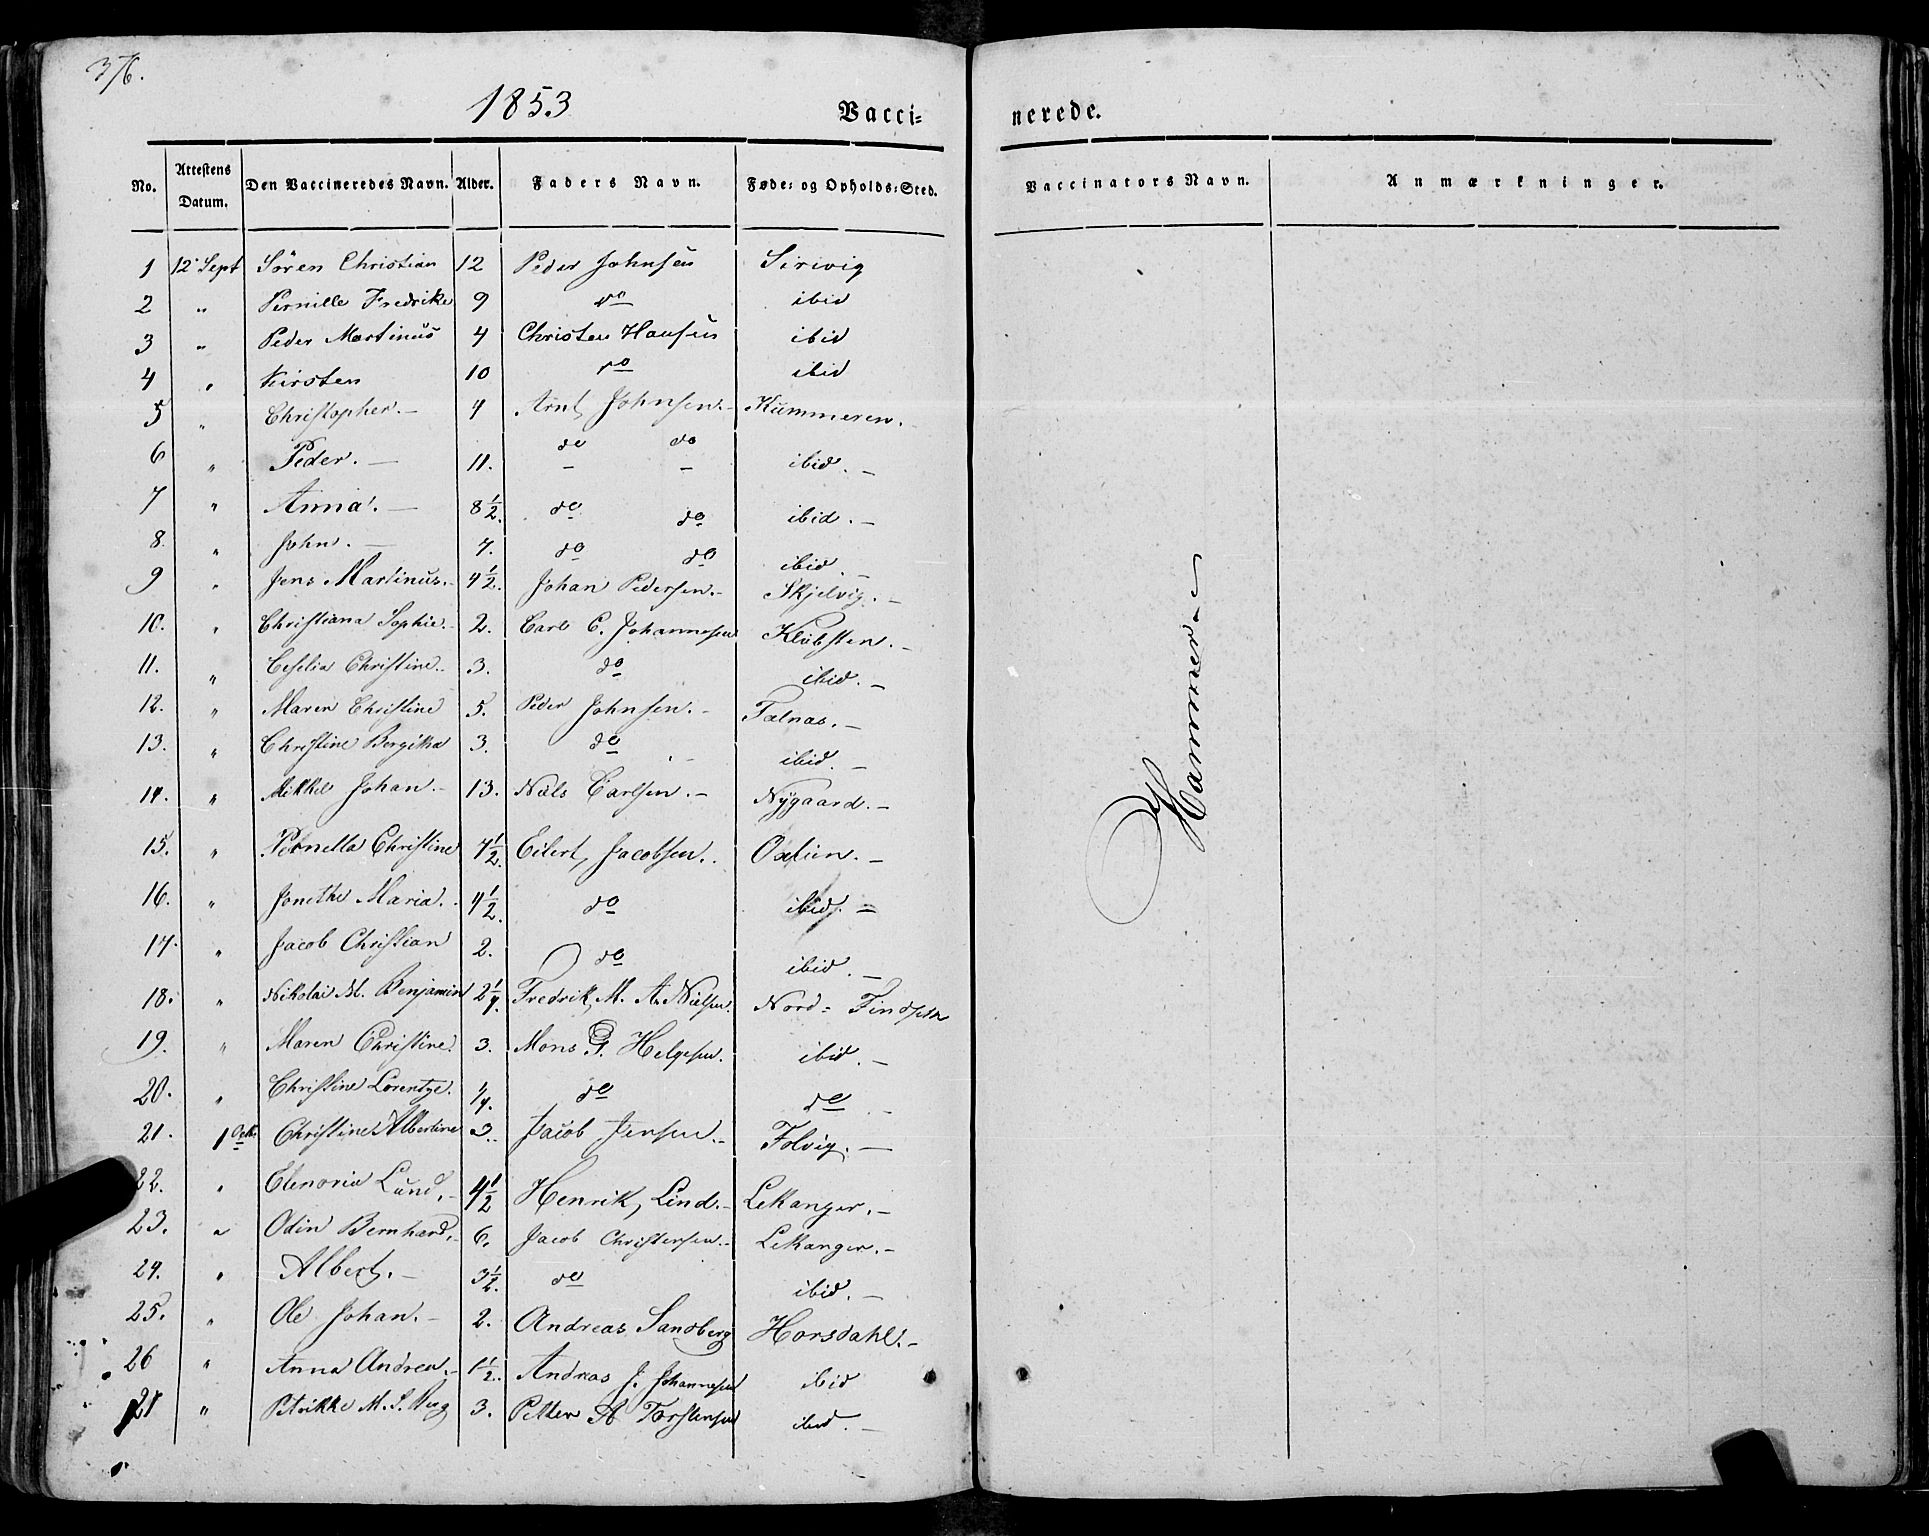 376.
1853
Vacci=
nerede.
No. Attestens Datum. Den Vaccineredes Navn. Alder. Faders Navn. Føde= og Opholds=Sted.
Vaccinators Navn. Anmærkninger.
1 12 Sept Sören Christian 12 Peder Johnsen Sirivig
2 " Pernille Fredrike 9 do ibid
3 " Peder Martinus 4 Christen Hansen ibid
4 " Kirsten 10 do ibid
5 " Christopher. 4 Arnt Johnsen. Kummeren.
6 " Peder. 11. do do ibid.
7 " Anna. 8½. do do ibid.
8. " John. 4. do do ibid.
9 " Jens Martinus. 4½. Johan Pedersen. Skjelvig.
10. " Christiana Sophie. 2. Carl C. Johannesen Klubsten.
11. " Cesilia Christine. 3. do ibid.
12. " Maren Christine 5. Peder Johnsen. Talnas.
13. " Christine Bergitha 3. do ibid.
14. " Mikkel Johan. 13. Nils Carlsen. Nygaard.
15. " Pernella Christine 4½. Eilert Jacobsen.
16. " Jonethe Maria. 4½. do ibid.
17. " Jacob Christian 2. do ibid.
18. " Nikolai M. Benjamin 2¼. Fredrik M. A. Nielsen. Nord=
19. " Maren Christine. 3. Mons G. Helgesen. ibid.
20. " Christine Lorentze. ¼. do do
21. 1 Oct. Christine Albertine 3. Jacob Jensen. Folvig.
22. " Elenoria Lund. 4½ Henrik Lind. Lekanger.
23. " Odin Bernhard. 6. Jacob Christensen. Lekanger.
24. " Albert. 3½. do ibid.
25. " Ole Johan. 2. Andreas Sandberg Horsdahl.
26 " Anna Andrea. 1½. Andreas J. Johannesen ibid
27 " Petrikke M. S. Berg 3. Petter A Torstensen ibid.
Hammer